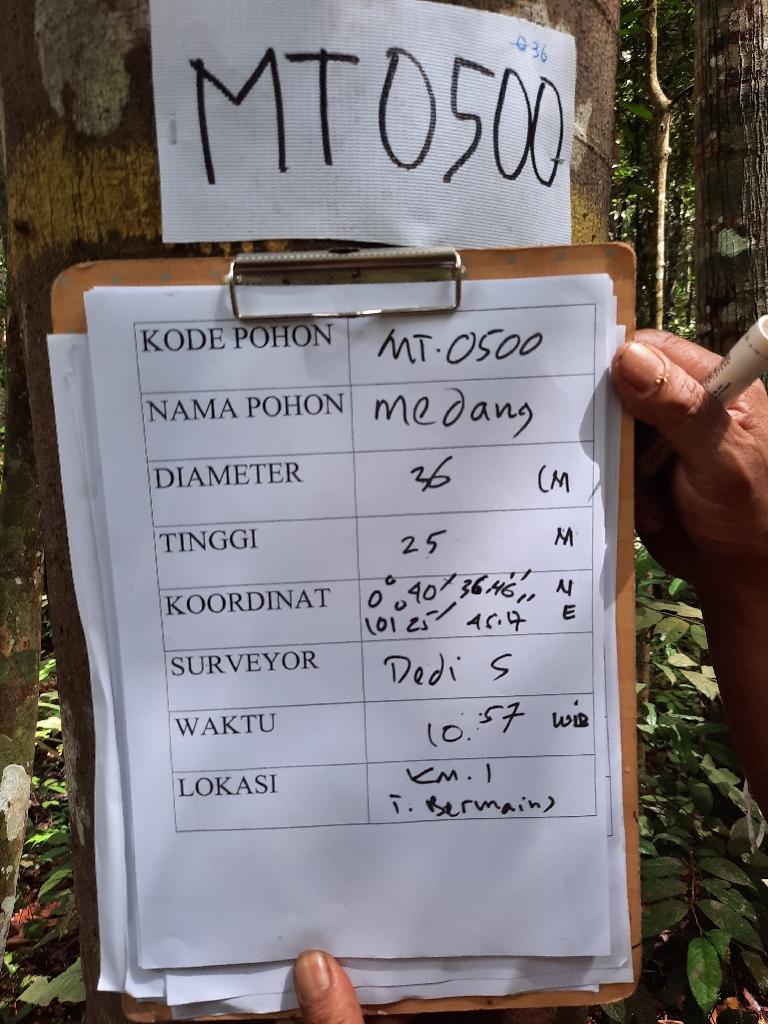 036
MT0500
KODE POHON MT.0500
NAMA POHON Medang
DIAMETER 36 CM
TINGGI 25 M
KOORDINAT 0° 40' 36.46" N
101° 25' 45.17 E
SURVEYOR Dedi S
WAKTU 10:57 WIB
LOKASI KM.1
T. Bermaing